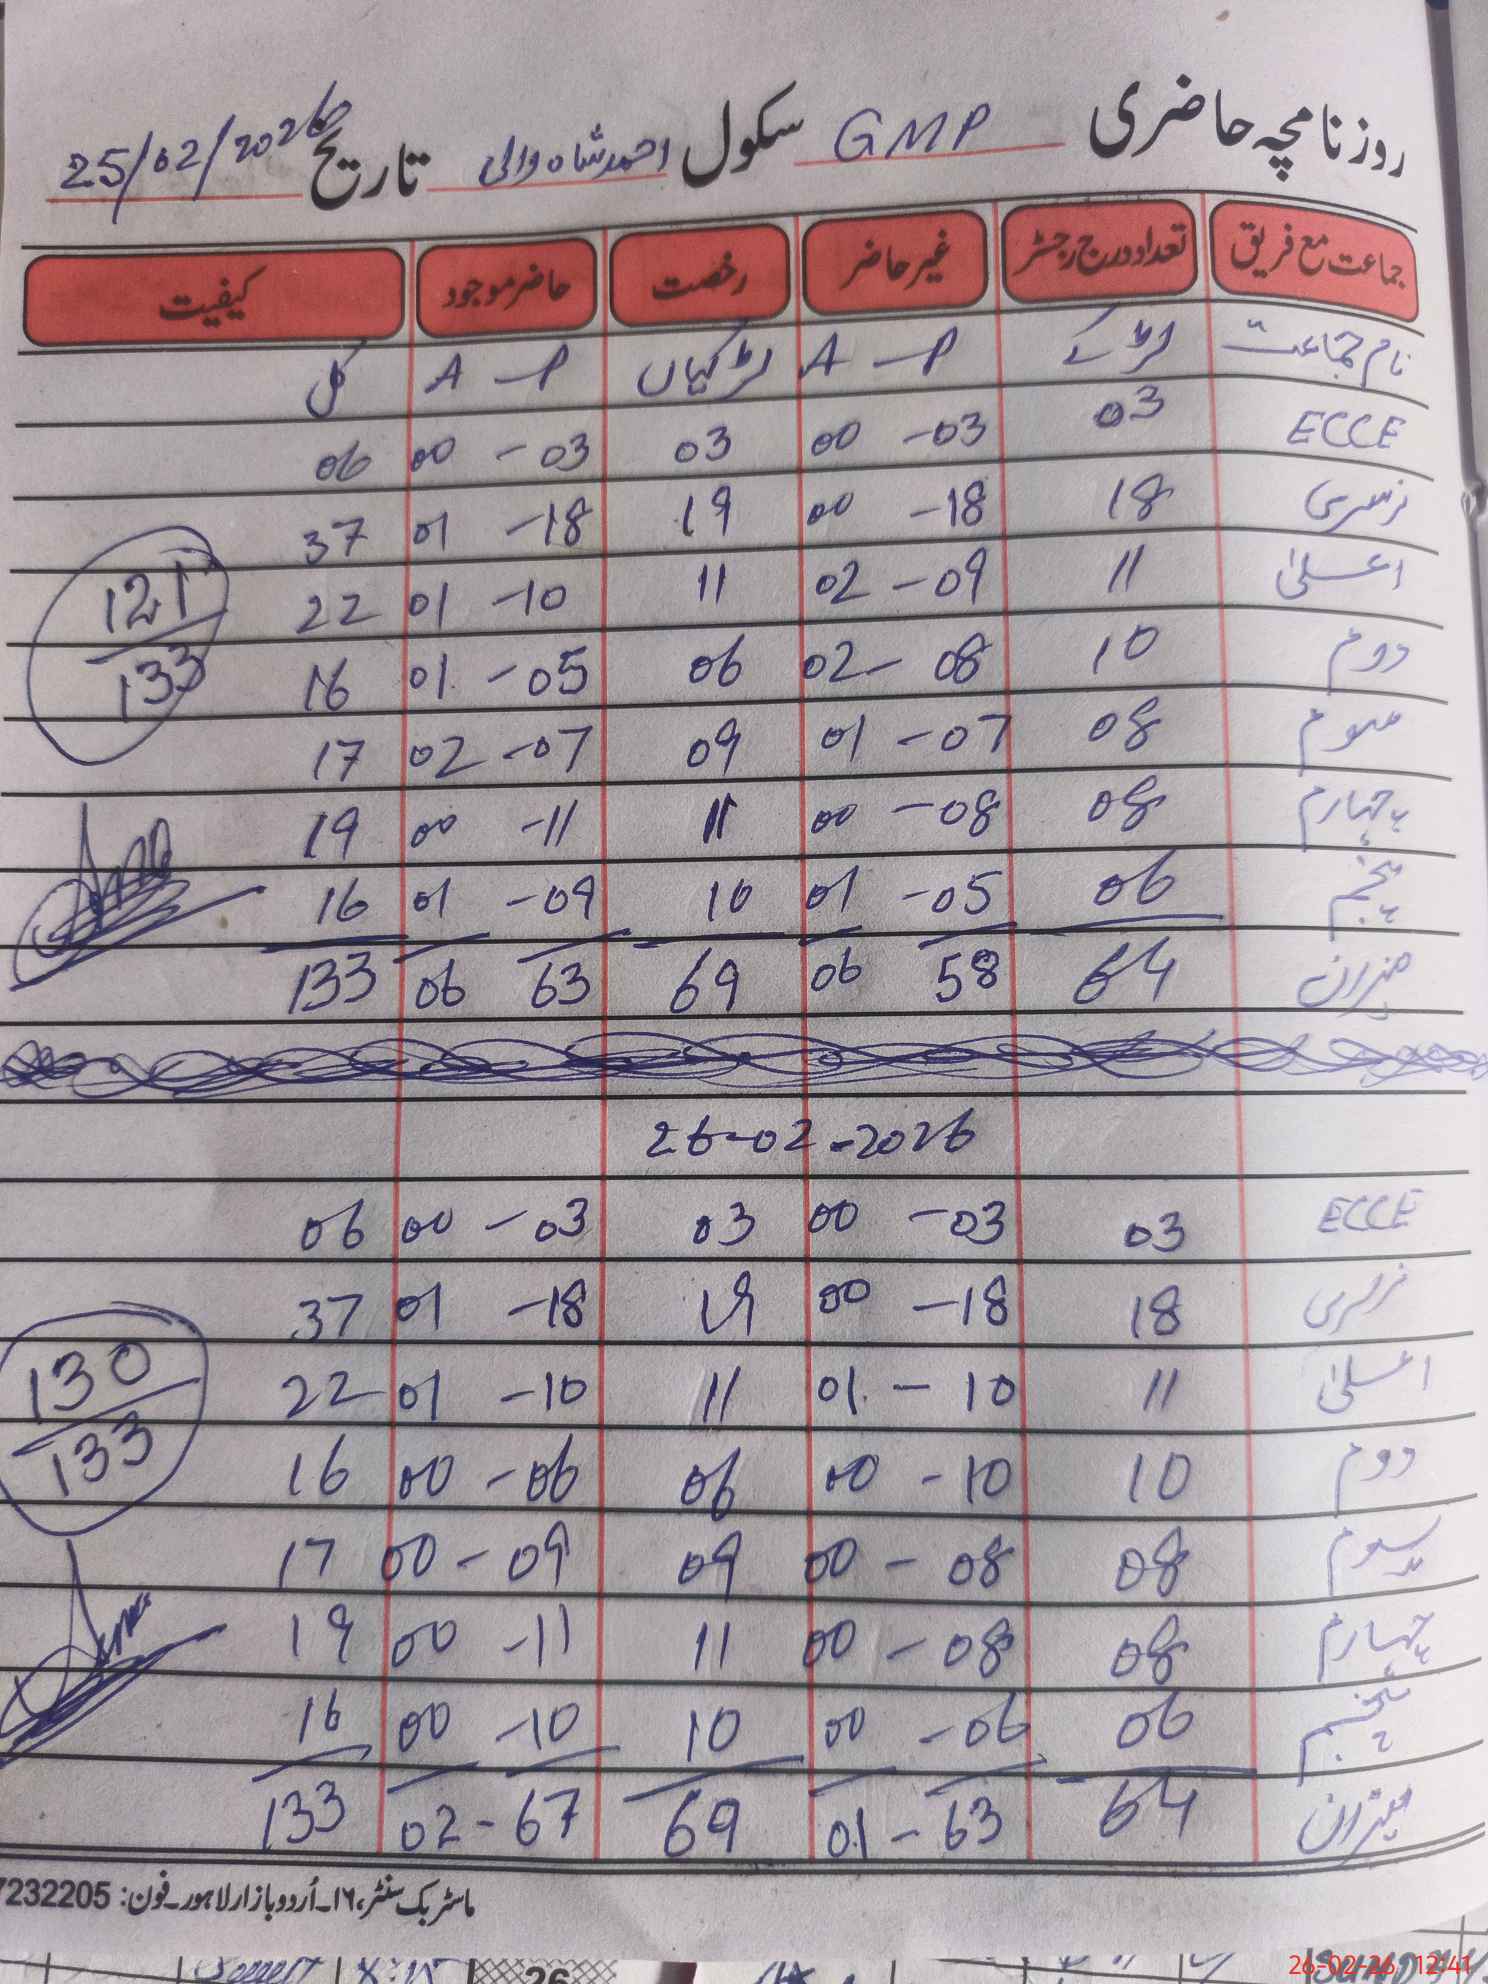 روزنامچہ حاضری GMP سکول احمد شاہ والی تاریخ 25/02/2026
جماعت مع فریق تعداد درج رجسٹر غیر حاضر رخصت حاضر موجود کیفیت
نام جماعت لڑکے P – A لڑکیاں P – A کل
ECCE 03 03 – 00 03 03 – 00 06
نرسری 18 18 – 00 19 18 – 01 37
اعلیٰ 11 09 – 02 11 10 – 01 22
دوم 10 08 – 02 06 05 – 01 16
سوم 08 07 – 01 09 07 – 02 17
چہارم 08 08 – 00 11 11 – 00 19
پنجم 06 05 – 01 10 09 – 01 16
میزان 64 58 06 69 63 06 133
121/133
26-02-2026
ECCE 03 03 – 00 03 03 – 00 06
نرسری 18 18 – 00 19 18 – 01 37
اعلیٰ 11 10 – 01 11 10 – 01 22
دوم 10 10 – 00 06 06 – 00 16
سوم 08 08 – 00 09 09 – 00 17
چہارم 08 08 – 00 11 11 – 00 19
پنجم 06 06 – 00 10 10 – 00 16
میزان 64 63 – 01 69 67 – 02 133
130/133
ماسٹر بک سنٹر، ١٦۔اُردو بازار لاہور۔فون: 7232205
26
26-02-26 12:41